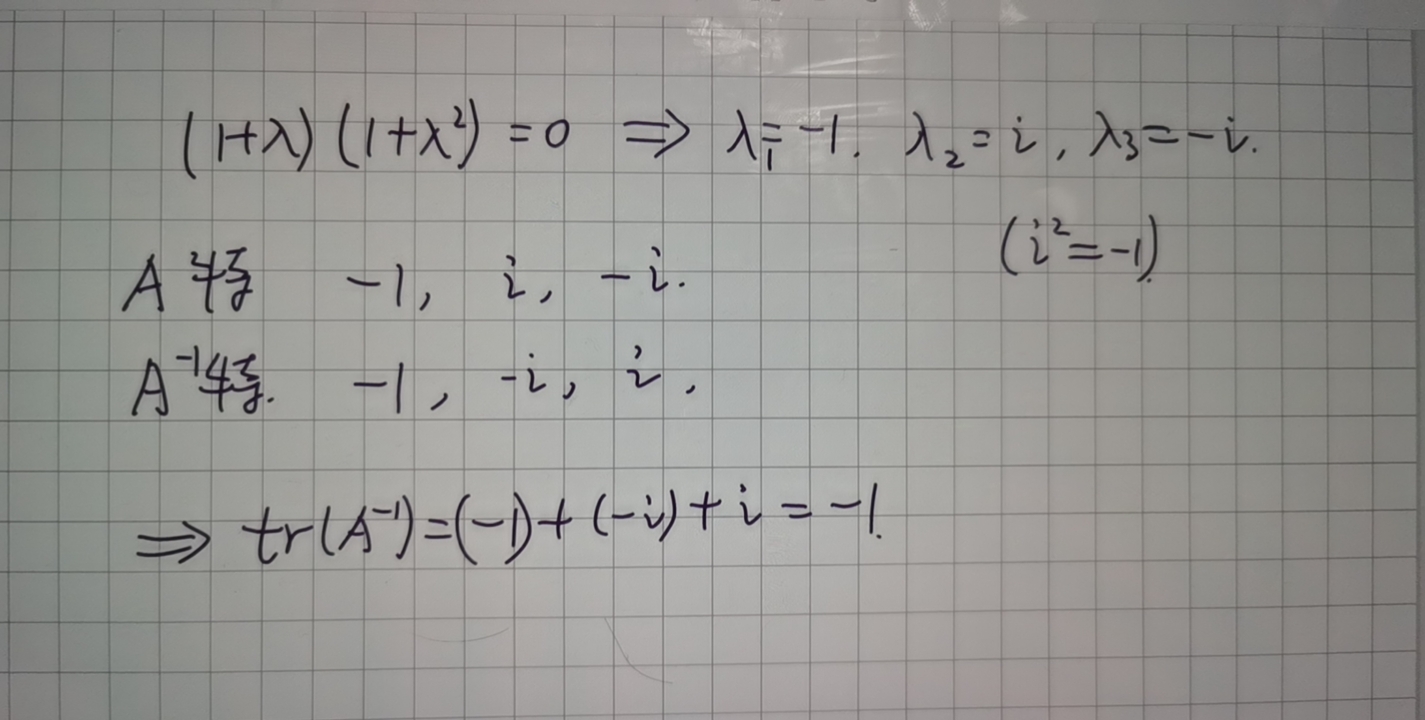 (1+λ)(1+λ²)=0 ⇒ λ₁=-1. λ₂=i, λ₃=-i.
(i²=-1).
A特 -1, i, -i.
A⁻¹特. -1, -i, i,
⇒ tr(A⁻¹)=(-1)+(-i)+i=-1.